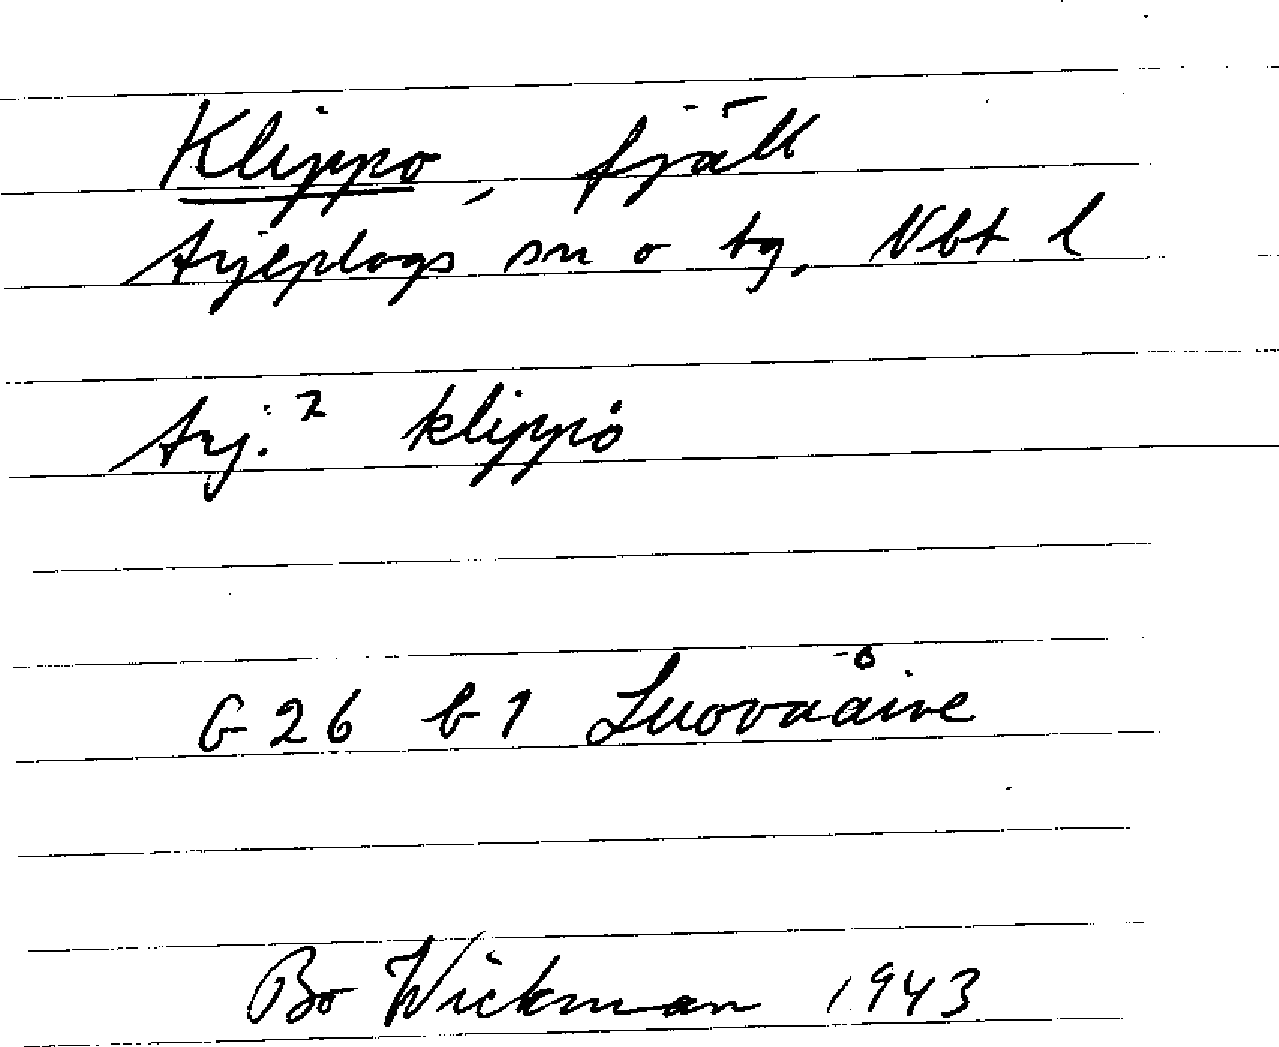 Klippo, fjäll
Arjeplogs sn o tg, Nbt l
Arj.² klippȯ
G 26 b 1 Luovaåive
Bo Wickman 1943